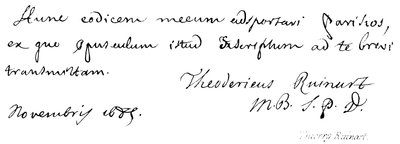 Hunc codicem meum adsportavi Parisios,
ex quo Opusculum istud descriptum ad te brevi
transmittam.
Theodericus Ruinart
M.B. S. P. D.
Novembris 1685.
Thierry Ruinart.